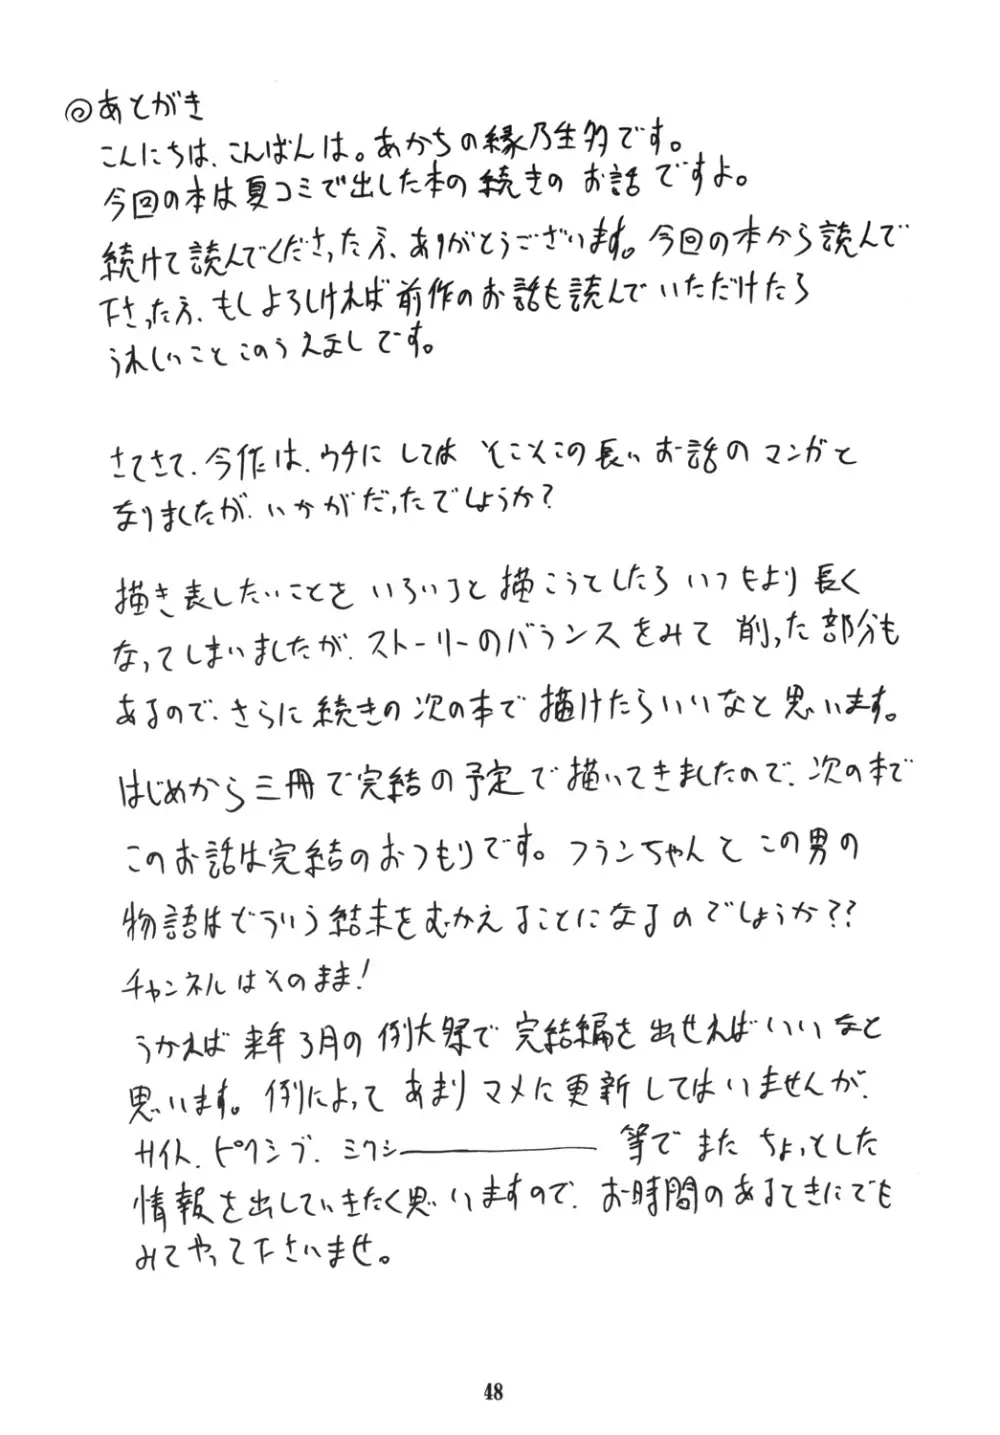 ◎あとがき
こんにちは、こんばんは。あかちの縁乃生多です。
今回の本は夏コミで出した本の続きのお話ですよ。
続けて読んでくださった方、ありがとうございます。今回の本から読んで
下さった方、もしよろしければ前作のお話も読んでいただけたら
うれしいことこのうえなしです。
さてさて、今作は、ウチにしてはそこそこの長いお話のマンガと
なりましたが、いかがだったでしょうか?
描き表したいことをいろいろと描こうとしたらいつもより長く
なってしまいましたが、ストーリーのバランスをみて削った部分も
あるので、さらに続きの次の本で描けたらいいなと思います。
はじめから三冊で完結の予定で描いてきましたので、次の本で
このお話は完結のおつもりです。フランちゃんとこの男の
物語はどういう結末をむかえることになるのでしょうか??
チャンネルはそのまま!
うかれば来年3月の例大祭で完結編を出せればいいなと
思います。例によってあまりマメに更新してはいませんが、
サイト、ピクシブ、ミクシー――――等でまたちょっとした
情報を出していきたく思いますので、お時間のあるときにでも
みてやって下さいませ。
48